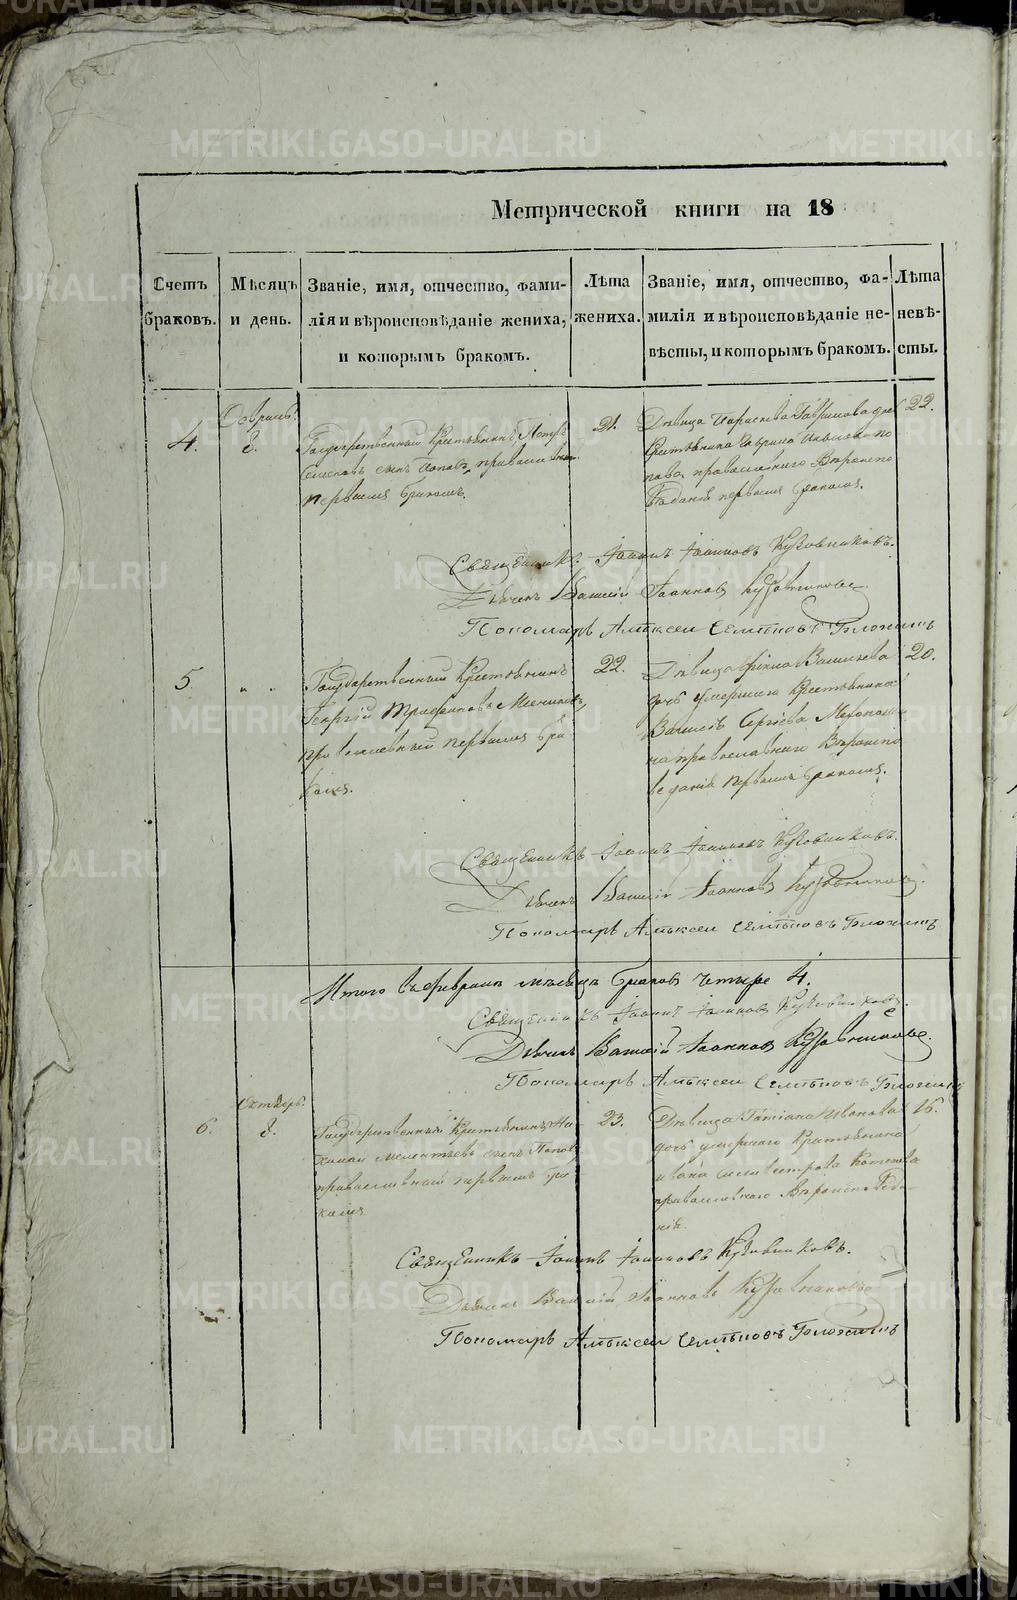 METRIKI.GASO-URAL.RU
Метрической книги на 18
Счетъ браковъ.
Мѣсяцъ и день.
Званіе, имя, отчество, фами-
лія и вѣроисповѣданіе жениха,
и которымъ бракомъ.
Лѣта
жениха.
Званіе, имя, отчество, фа-
милія и вѣроисповѣданіе не-
вѣсты, и которымъ бракомъ.
Лѣта
невѣ-
сты.
4.
8.
Государственный Крестьянинъ Петръ
сынъ Поповъ
первымъ бракомъ.
21.
Дѣвица Параскева Гаврилова
Крестьянина Гаврила По-
пова православнаго Вѣроиспо
вѣданія первымъ бракомъ.
22.
Священникъ Іоаннъ Іоанновъ Кузовниковъ.
Дьяконъ Василій Іоанновъ Кузовниковъ
Пономарь Алѣксеи Семѣновъ
5
" "
Государственный Крестьянинъ
Георгій
православный первымъ бра
комъ.
22.
Дѣвица Васильева
дочь умершаго Крестьянина
Василія Сергѣева
православнаго Вѣроиспо
веданія первымъ бракомъ.
20.
Священникъ Іоаннъ Іоанновъ Кузовниковъ.
Дьяконъ Василій Іоанновъ Кузовниковъ.
Пономарь Алѣксеи Семѣновъ
Итого въ февралѣ мѣсяцѣ браковъ четыре 4.
Священникъ Іоаннъ Іоанновъ Кузовниковъ
Дьяконъ Василій Іоанновъ Кузовниковъ.
Пономарь Алѣксеи Семѣновъ
6.
Октябрь.
8.
Государственный Крестьянинъ
сынъ Поповъ
православный первымъ бра
комъ
23.
Дѣвица Татіана Иванова
дочь умершаго Крестьянина
Ивана Силивестрова
православнаго Вѣроисповеда
нія.
16.
Священникъ Іоаннъ Іоанновъ Кузовниковъ.
Дьяконъ Василій Іоанновъ Кузовниковъ
Пономарь Алѣксеи Семѣновъ